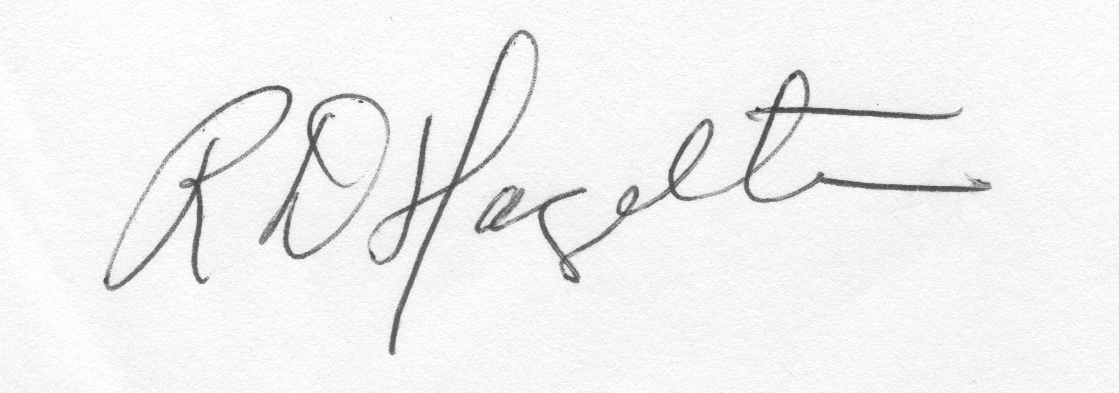 R D Hazelton